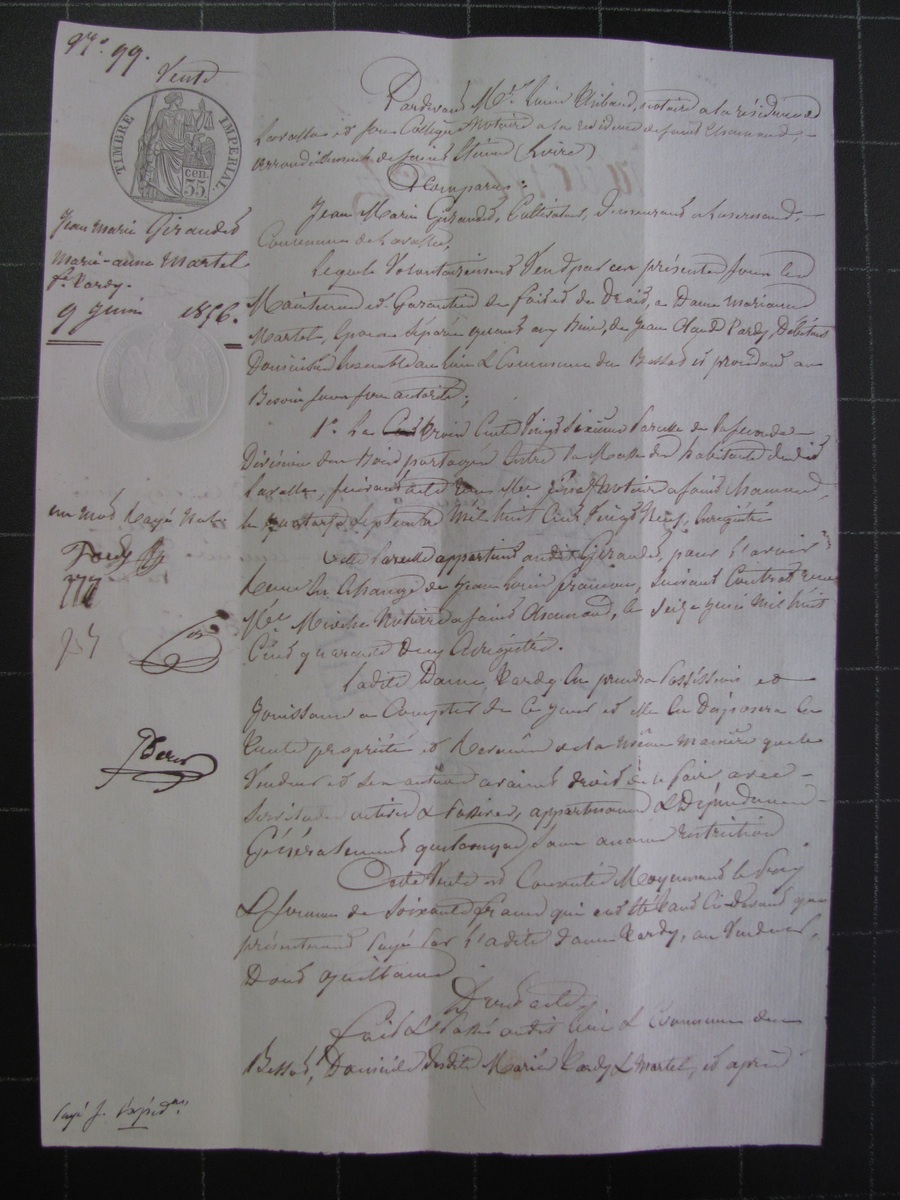 N.° 99.
Vente
TIMBRE IMPERIAL
35 cen.
Jean Marie Giraudet
Marie-anne Martel
fe. Vardy.
9 Juin 1856.
un mot Rayé Nul
Pardevant Me. Louis notaire a la résidence de
Lavalla et son Collègue Notaire a la résidence de Saint Chamond,
arrondissement de Saint Etienne (Loire)
a Comparu:
Jean Marie Giraudet, Cultivateur, demeurant a
Commune de Lavalla.
Lequel Volontairement Vend par ces présentes sous les
Maintenue et Garantie de fait et de Droit, a Dame Marianne
Martel, Epouse Séparée quant aux biens, de Jean Claude Vardy,
Domiciliés Ensemble au lieu & Commune de Bessat et procédant au
Besoin sous son autorité;
1°. La Trois Cent Vingt Sixième Parcelle de la Seconde
Division des Bois partagés Entre la Masse des habitants dudit
Lavalla, suivant acte reçu Me. Notaire a Saint Chamond,
le quatorze Septembre Mil huit Cent Vingt Neuf, Enregistré
Cette Parcelle appartient audit Giraudet, pour l'avoir
Reçue En Echange de Jean Louis, Suivant Contrat reçu
Me. Notaire a Saint Chamond, le Seize Juin Mil huit
Cent quarante deux Enregistré.
Ladite Dame Vardy En prendra Possession et
Jouissance a Compter de Ce Jour et Elle En Disposera En
Toute propriété et Revenus de la même manière que le
Vendeur et Ses auteurs avaient droit de le faire avec
Servitudes actives & Passives, appartenances & Dépendances
Généralement quelconques, sans aucune restriction
Cette Vente est Consentie Moyennant le Prix
& Somme de Soixante francs qui ont Eté
présentement Payés Par Ladite dame Vardy, au Vendeur,
Dont quittance
Dont acte
Fait & Passé audit lieu & Commune de
Bessat, Domicile desdits Mariés Vardy & Martel, et après